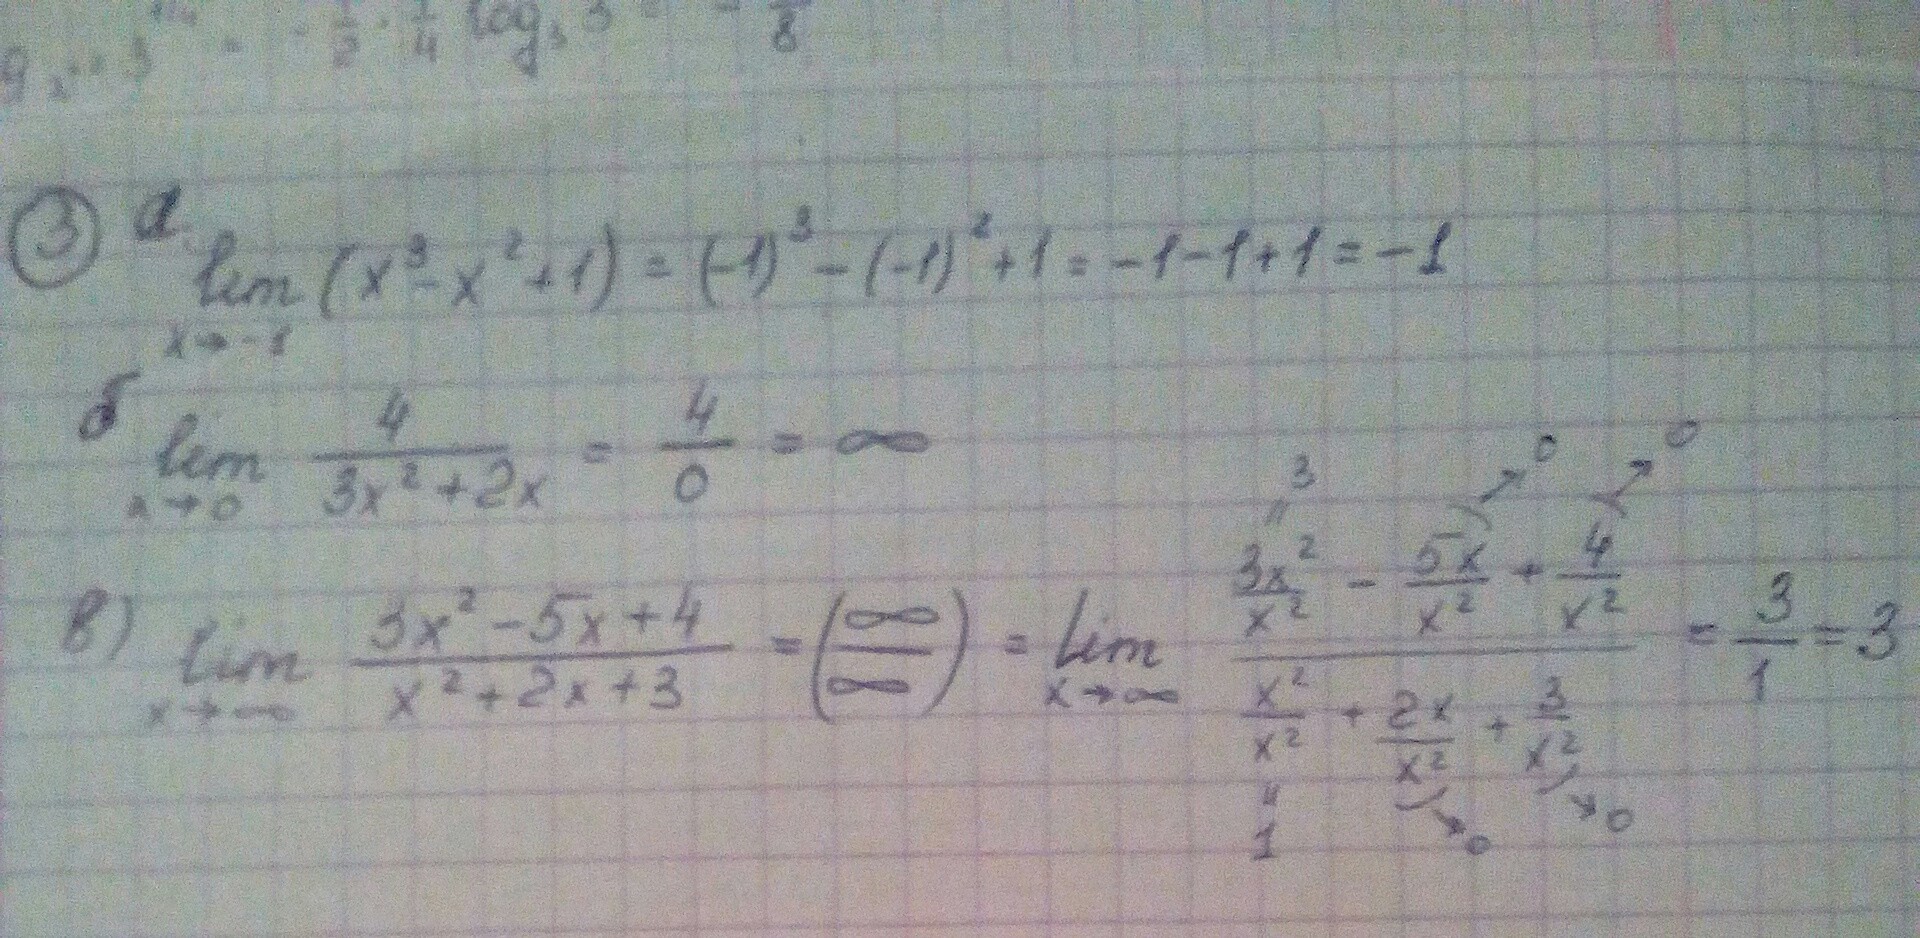 1/2 · 1/4 log₃ 3 = - 1/8
③ а. lim x→-1 (x³ - x² + 1) = (-1)³ - (-1)² + 1 = -1 - 1 + 1 = -1
б lim x→0 4/(3x² + 2x) = 4/0 = ∞
в) lim x→∞ (3x² - 5x + 4)/(x² + 2x + 3) = (∞/∞) = lim x→∞ (3x²/x² - 5x/x² + 4/x²)/(x²/x² + 2x/x² + 3/x²) = 3/1 = 3
3 " → 0 → 0
" 1 → 0 → 0